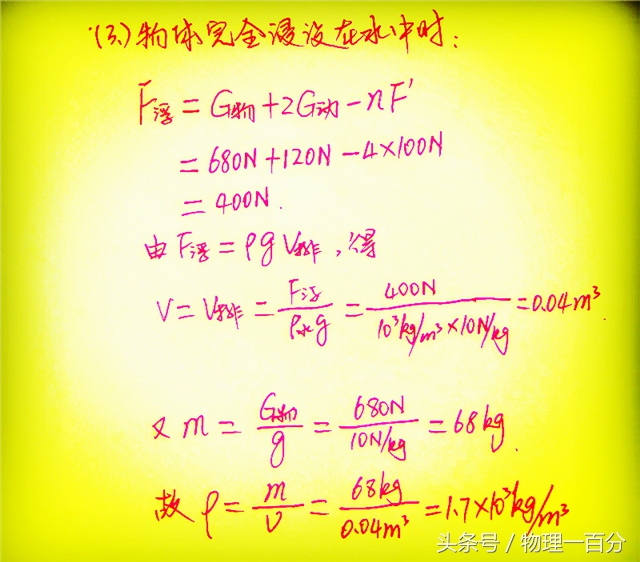 (3)物体完全浸没在水中时:
F浮 = G物+2G动-nF'
= 680N+120N-4×100N
= 400N.
由F浮=ρgV排,得
V=V排= F浮/ρ水g = 400N/10³kg/m³×10N/kg =0.04m³.
又 m = G物/g = 680N/10N/kg = 68kg.
故 ρ= m/V = 68kg/0.04m³ =1.7×10³kg/m³
头条号 / 物理一百分